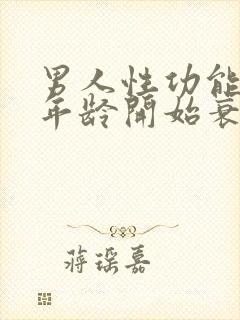 男人性功能
年龄開始衰
蒋琛嘉